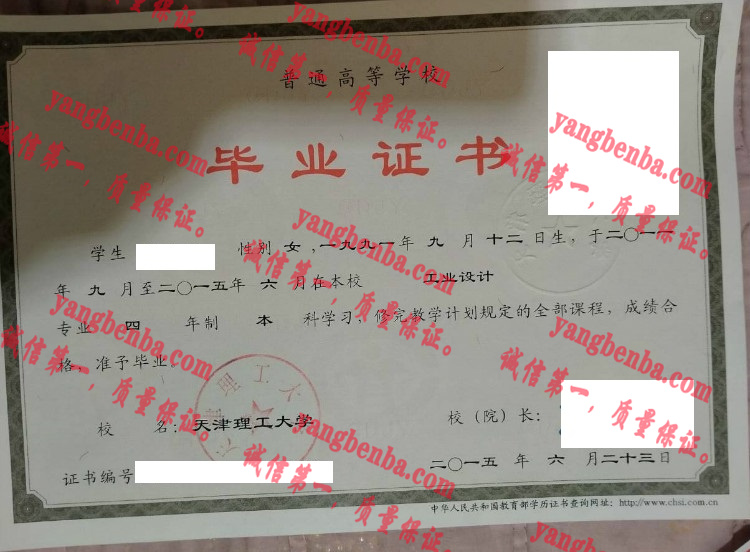 普通高等学校
毕业证书
学生 性别 女，一九九一年 九 月 十二 日生，于二〇一一
年 九 月至二〇一五年 六 月在本校 工业设计
专业 四 年制 本 科学习，修完教学计划规定的全部课程，成绩合
格，准予毕业。
校 名：天津理工大学
校（院）长：
证书编号
二〇一五 年 六 月二十三日
中华人民共和国教育部学历证书查询网址：http://www.chsi.com.cn
天津理工大学
yangbenba.com
诚信第一，质量保证。
yangbenba.com
诚信第一，质量保证。
yangbenba.com
诚信第一，质量保证。
yangbenba.com
诚信第一，质量保证。
yangbenba.com
诚信第一，质量保证。
yangbenba.com
诚信第一，质量保证。
yangbenba.com
诚信第一，质量保证。
yangbenba.com
诚信第一，质量保证。
yangbenba.com
诚信第一，质量保证。